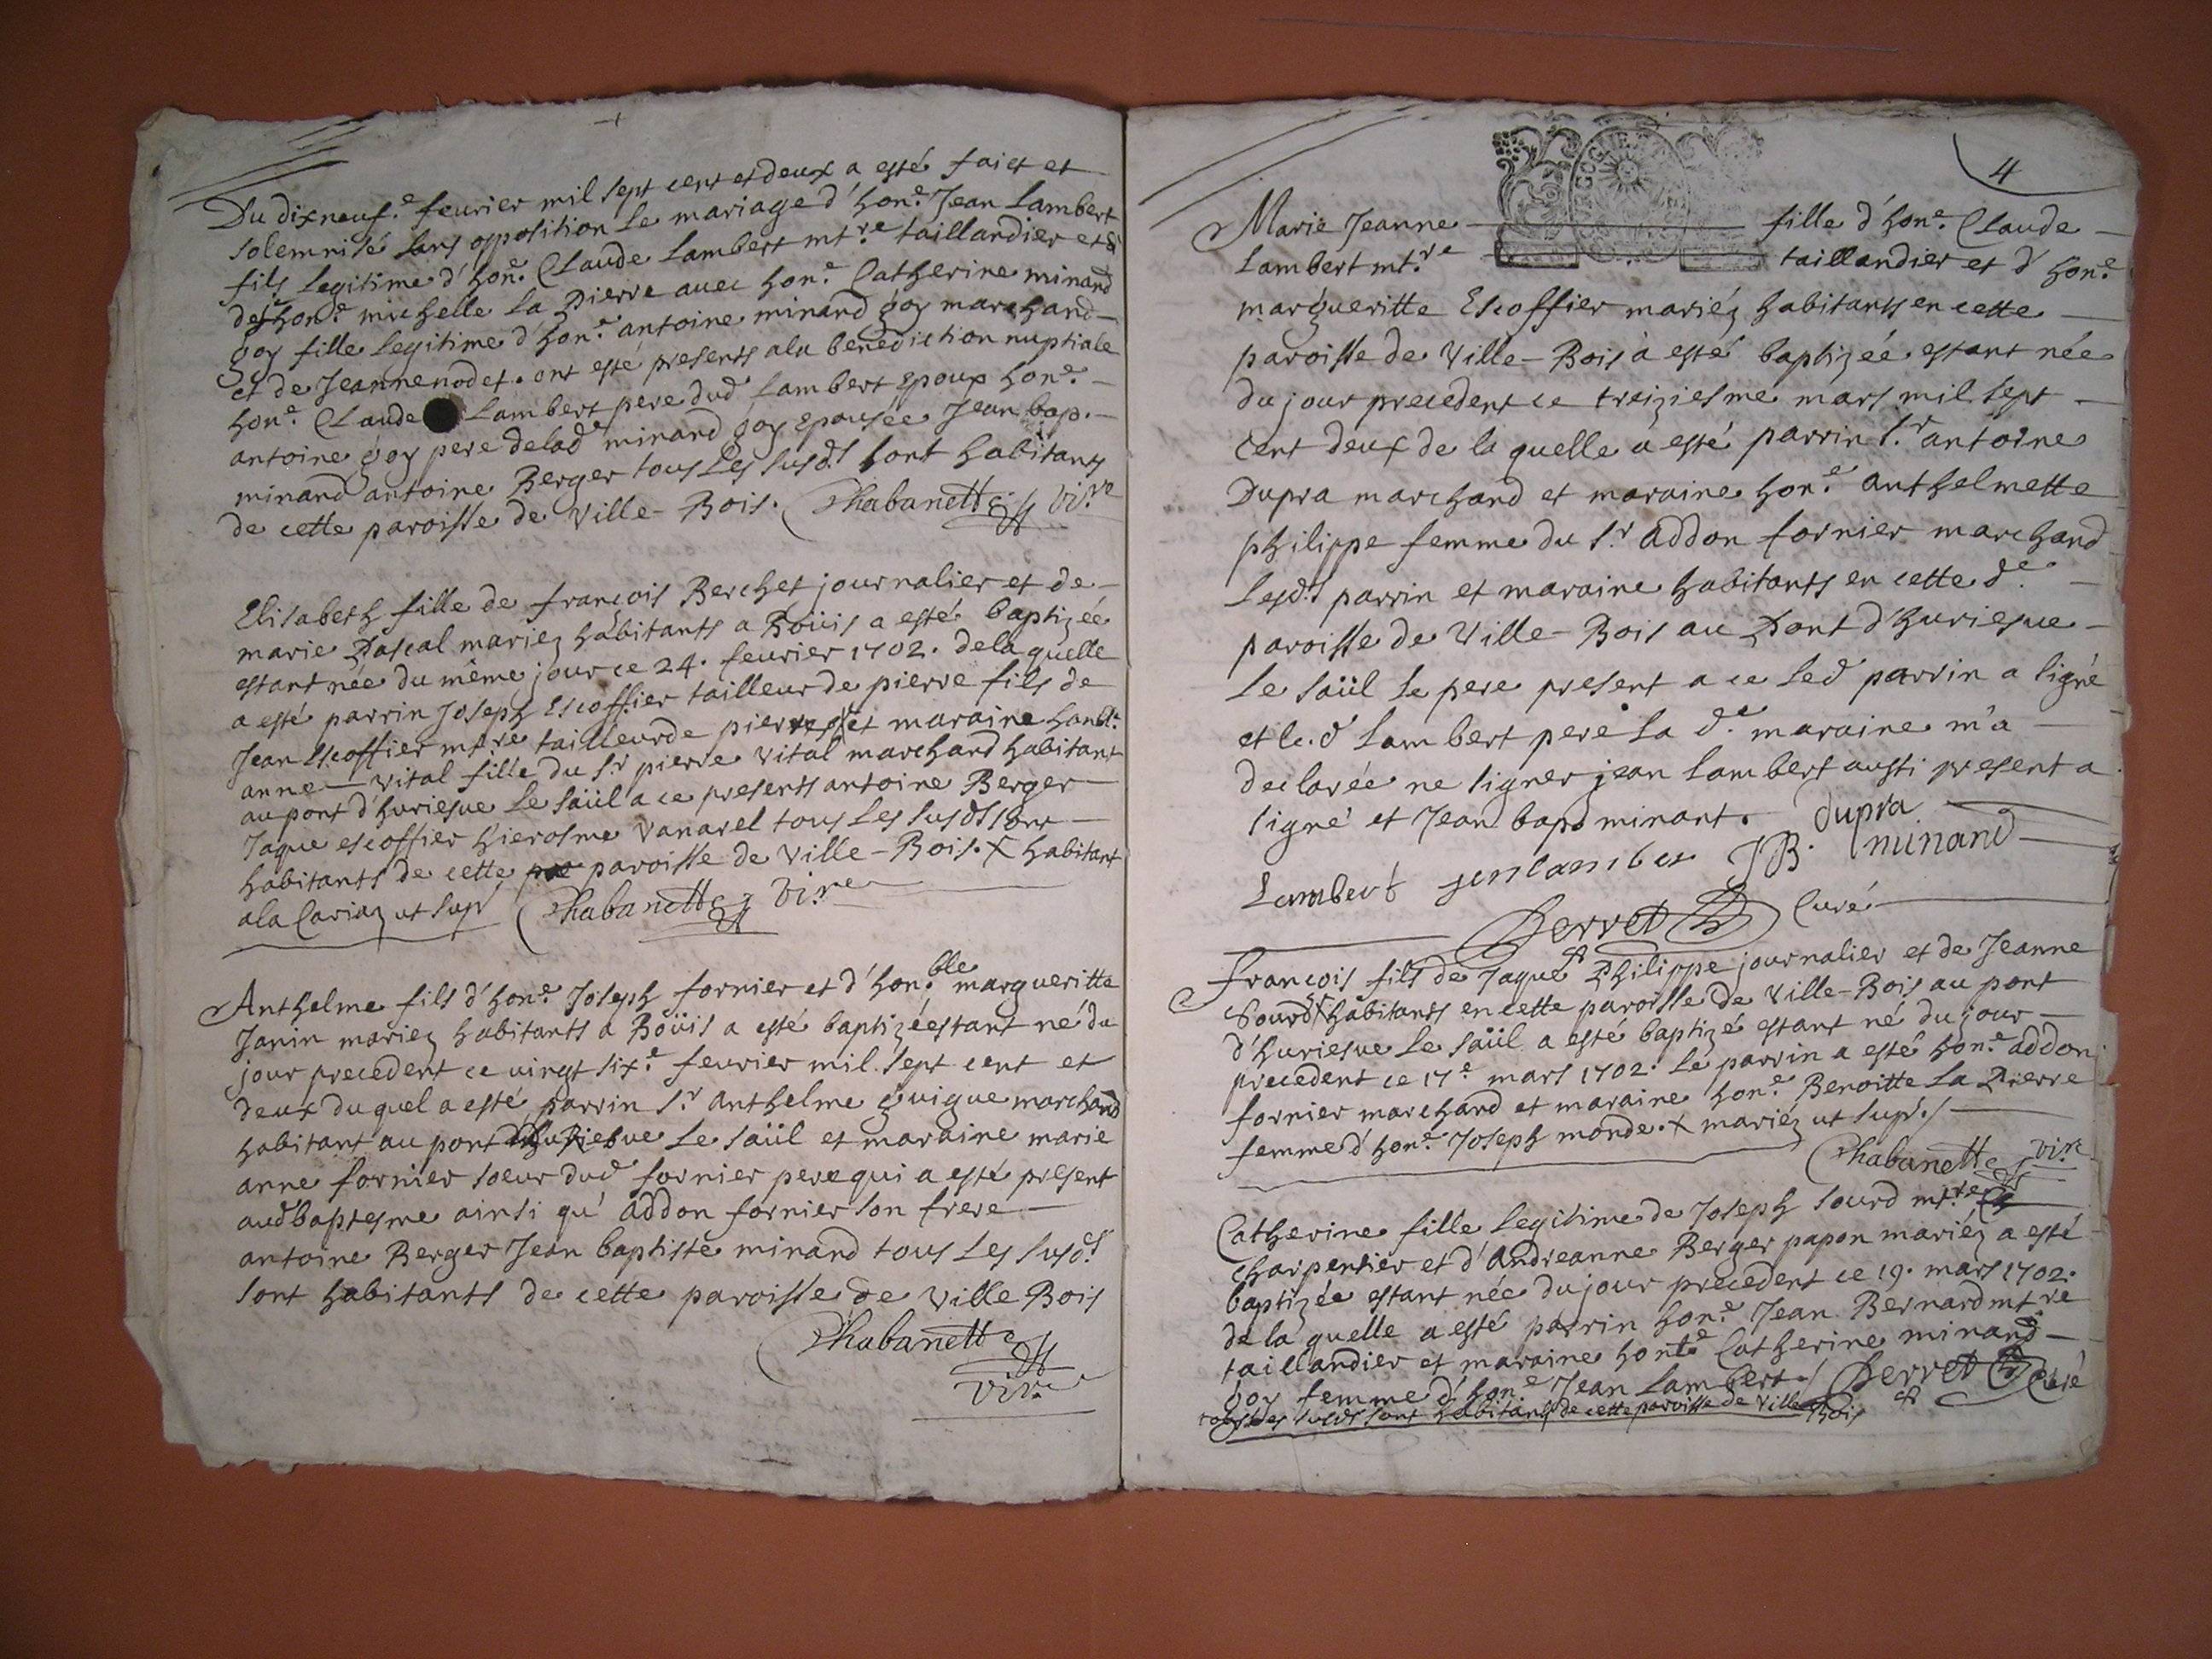 Du dixneuf.e feurier mil sept cent et deux a esté faict et
solemnisé sans opposition le mariage d'hon.e Jean Lambert
fils legitime d'hon.e Claude Lambert mt.re taillandier et
d'hon.e michelle La Pierre auec hon.e Catherine minand
goy fille legitime d'hon.e antoine minand goy marchand
et de Jeanne nodet. ont esté presents ala benediction nuptiale
hon.e Claude Lambert pere dud Lambert Epoux hon.e
antoine goy pere delad minand goy Epousée Jean bap.
minand antoine Berger tous Les susd.s sont habitants
de cette paroisse de Ville-Bois. Chabanette Vi.re
Elisabeth fille de françois Berchet journalier et de
marie Pascal mariez habitants a Boüis a esté baptizée
estant née du même jour ce 24. feurier 1702. dela quelle
a esté parrin Joseph Escoffier tailleur de pierre fils de
Jean Escoffier mt.re tailleur de pierre et maraine hon.e
anne vital fille du s.r pierre Vital marchand habitant
au pont d'huriesue le saüil a ce presents antoine Berger
Jaque escoffier hierosme Vanarel tous Les susd.s sont
habitants de cette paroisse de Ville-Bois. x habitant
ala Cariaz ut sup Chabanette Vi.re
Anthelme fils d'hon.e Joseph fornier et d'hon.ble margueritte
Janin mariez habitants a Boüis a esté baptizé estant né du
jour precedent ce vingt six.e feurier mil sept cent et
deux du quel a esté parrin s.r Anthelme guigue marchand
habitant au pont d'huriesue le saüil et maraine marie
anne fornier soeur dud fornier pere qui a esté present
aud baptesme ainsi qu' addon fornier son frere
antoine Berger Jean baptiste minand tous Les susd.s
sont habitants de cette paroisse de Ville Bois
Chabanette
Vi.re
4
Marie Jeanne fille d'hon.e Claude
Lambert mt.re taillandier et d' hon.e
margueritte Escoffier mariéz habitants en cette
paroisse de Ville-Bois à esté baptizéé estant née
du jour precedent ce treiziesme mars mil sept
cent deux de la quelle a esté parrin s.r antoine
Dupra marchand et maraine hon.e anthelmette
philippe femme du s.r addon fornier marchand
Lesd.s parrin et maraine habitants en cette d.e
paroisse de Ville-Bois au Pont d'huriesue
le saüil le pere present a ce led parrin a signé
et le.d Lambert pere la d.e maraine m'a
declarée ne signer jean Lambert aussi present a
signé et Jean bap minant. dupra
Lambert jenlamber JB. minand
Perret Curé
françois fils de Jaque Philippe journalier et de Jeanne
Sourd x habitants en cette paroisse de Ville-Bois au pont
d'huriesue le saüil a esté baptizé estant né du jour
precedent ce 17.e mars 1702. le parrin a esté hon.e addon
fornier marchand et maraine hon.e Benoitte La Pierre
femme d'hon.e Joseph monde. x mariéz ut sup./
Chabanette vi.re
Catherine fille legitime de Joseph Sourd mt.re
charpentier et d'andreanne Berger papon mariéz a esté
baptizée estant née du jour precedent ce 19. mars 1702.
de la quelle a esté parrin hon.e Jean Bernard mt.re
taillandier et maraine hon.e Catherine minand
goy femme d'hon.e Jean Lambert / Perret Curé
tous les susd.s sont habitants de cette paroisse de Ville Bois